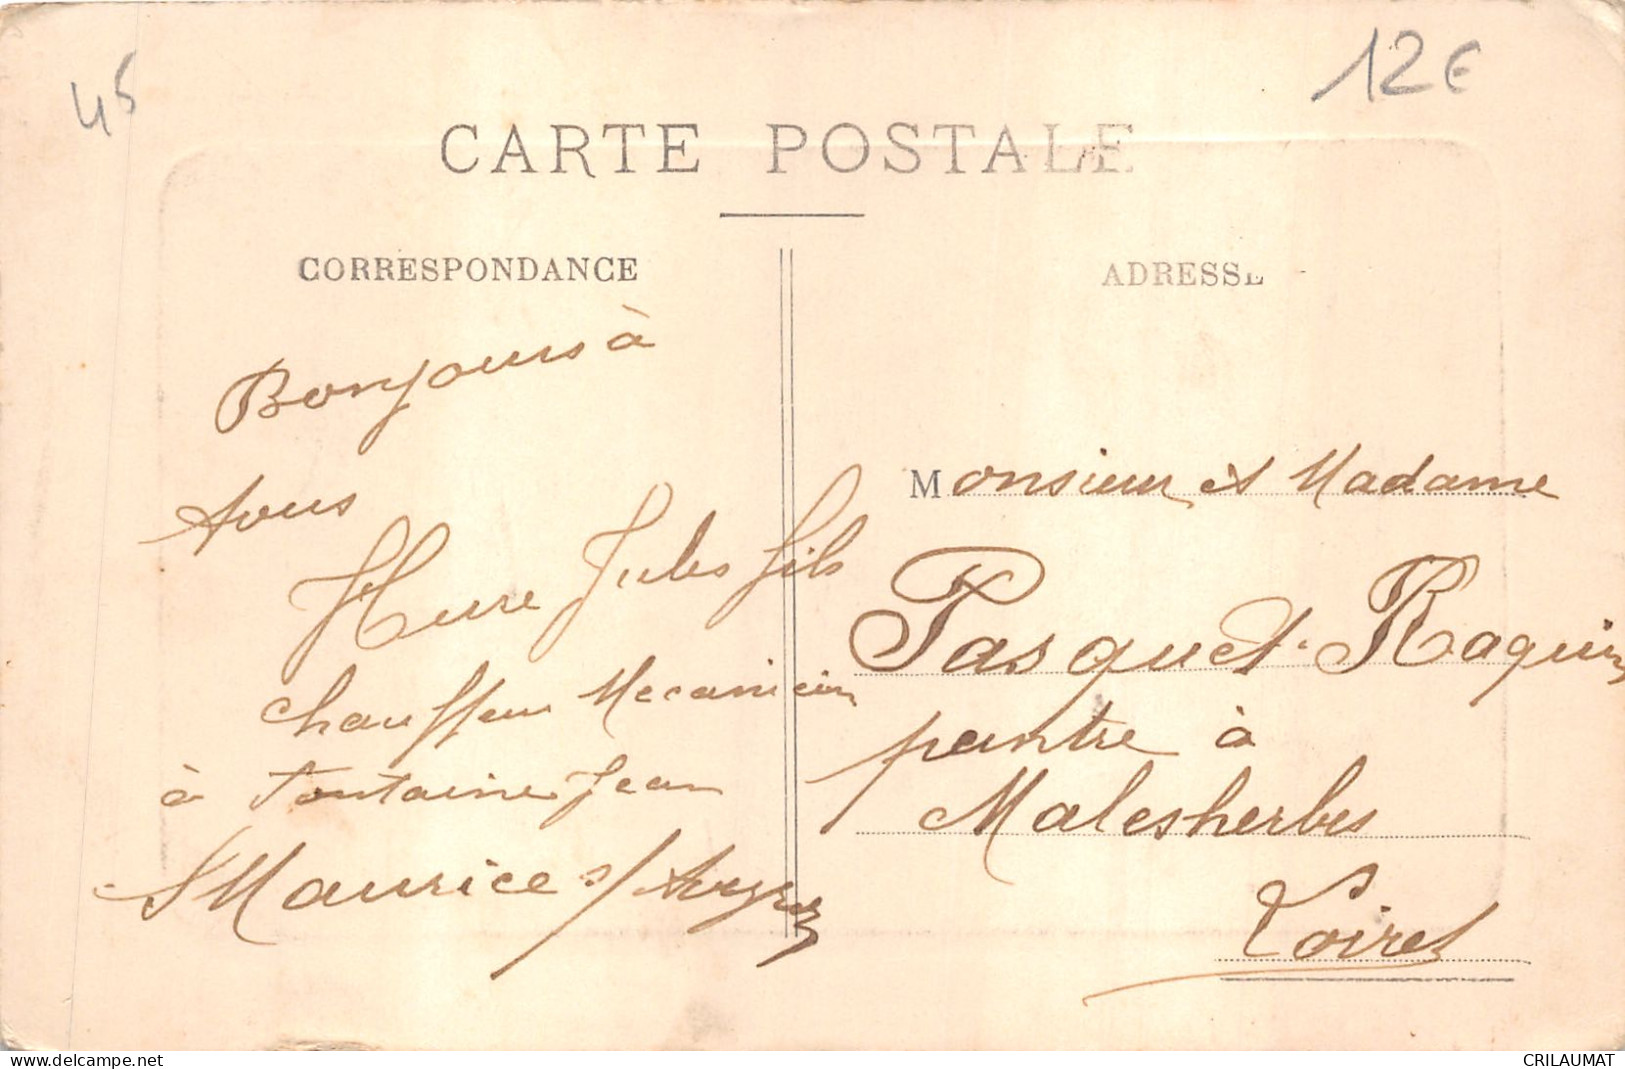 45
12€
CARTE POSTALE
CORRESPONDANCE
ADRESSE
Bonjours à
tous
Hure Jules fils
chauffeur Mecanicien
à Fontaine Jean
St Maurice s/ Aveyron
Monsieur et Madame
Pasquet-Raquin
peintre à
Malesherbes
Loiret
www.delcampe.net
CRILAUMAT